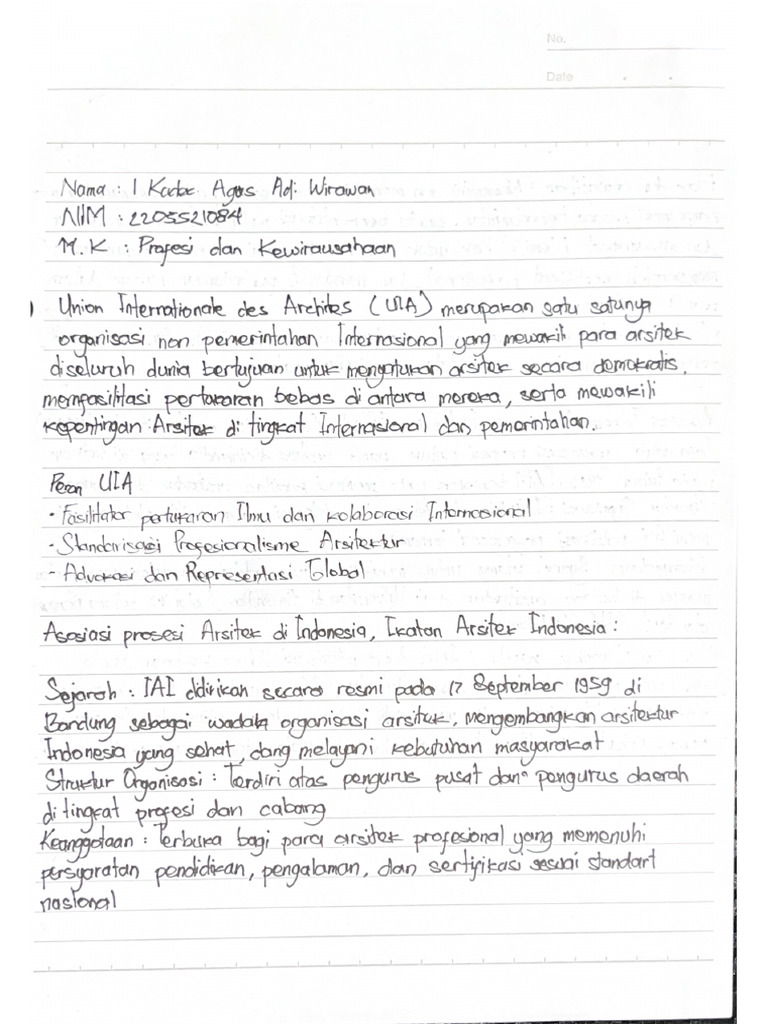 No.
Date
Nama : I Kadek Agus Adi Wirawan
NIM : 2205521084
M.K : Profesi dan Kewirausahaan
) Union Internationale des Archites (UIA) merupakan satu satunya
organisasi non pemerintahan Internasional yang mewakili para arsitek
diseluruh dunia bertujuan untuk mengatukan arsitek secara demokratis,
memfasilitasi pertukaran bebas di antara mereka, serta mewakili
kepentingan Arsitek di tingkat Internasional dan pemerintahan.
Peran UIA
- Fasilitator pertukaran Ilmu dan kolaborasi Internasional
- Standarisasi Profesionalisme Arsitektur
- Advokasi dan Representasi Global
Asosiasi prosesi Arsitek di Indonesia, Ikatan Arsitek Indonesia :
Sejarah : IAI didirikan secara resmi pada 17 September 1959 di
Bandung sebagai wadah organisasi arsitek, mengembangkan arsitektur
Indonesia yang sehat, dang melayani kebutuhan masyarakat
Struktur Organisasi : Terdiri atas pengurus pusat dan pengurus daerah
di tingkat profesi dan cabang
Keanggotaan : Terbuka bagi para arsitek profesional yang memenuhi
persyaratan pendidikan, pengalaman, dan sertifikasi sesuai standart
nasional